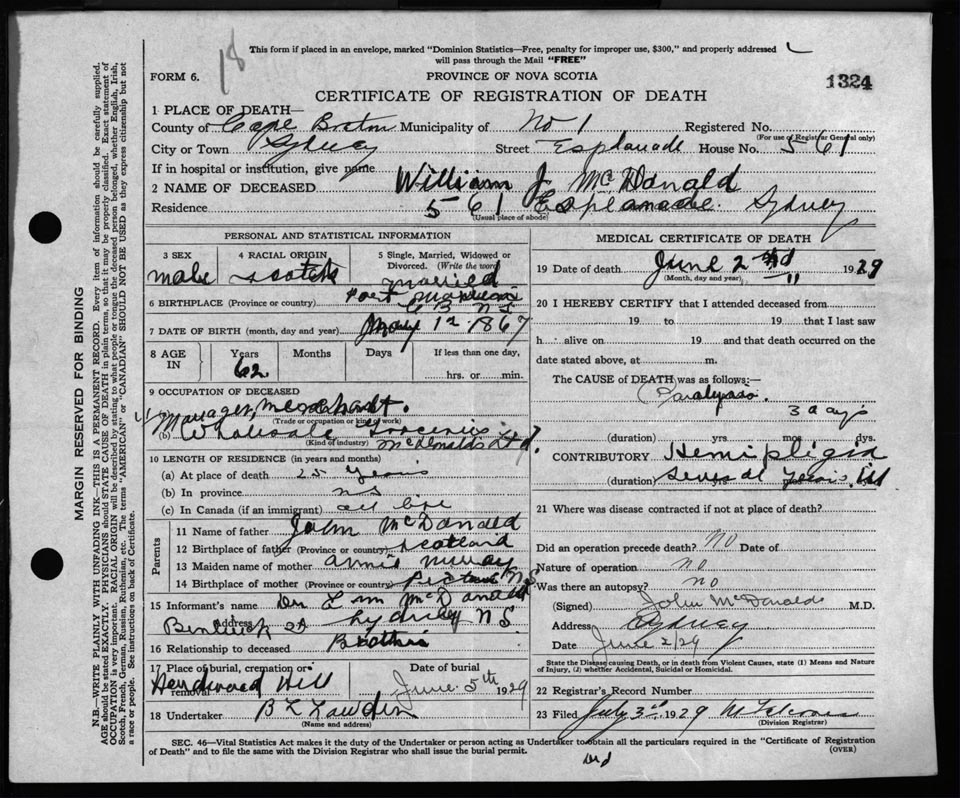 18
This form if placed in an envelope, marked "Dominion Statistics—Free, penalty for improper use, $300," and properly addressed
will pass through the Mail "FREE"
FORM 6.
PROVINCE OF NOVA SCOTIA
1324
CERTIFICATE OF REGISTRATION OF DEATH
1 PLACE OF DEATH—
County of Cape Breton Municipality of No 1 Registered No.
(For use of Registrar General only)
City or Town Sydney Street Esplanade House No. 561
If in hospital or institution, give name
2 NAME OF DECEASED William J. McDonald
Residence 561 Esplanade. Sydney
(Usual place of abode)
PERSONAL AND STATISTICAL INFORMATION
3 SEX male
4 RACIAL ORIGIN scotch
5 Single, Married, Widowed or
Divorced. (Write the word)
married
6 BIRTHPLACE (Province or country) Port
C B N S
7 DATE OF BIRTH (month, day and year) May 12 1867
8 AGE IN Years 62 Months Days If less than one day,
hrs. or min.
9 OCCUPATION OF DECEASED
Manager, merchant.
(Trade or occupation or kind of work)
(b) Wholesale Groceries McDonalds Ltd
(Kind of industry)
10 LENGTH OF RESIDENCE (in years and months)
(a) At place of death 25 years
(b) In province NS
(c) In Canada (if an immigrant) all life
Parents
11 Name of father John McDonald
12 Birthplace of father (Province or country) scotland
13 Maiden name of mother Annie Murray
14 Birthplace of mother (Province or country) Pictou N S
15 Informant's name Dr L M McDonald
Address Bentinck St Sydney N S
16 Relationship to deceased Brother
17 Place of burial, cremation or removal Hardwood Hill
Date of burial June 5th 1929
18 Undertaker
(Name and address)
MEDICAL CERTIFICATE OF DEATH
19 Date of death June 2nd 1929
(Month, day and year)
20 I HEREBY CERTIFY that I attended deceased from
19 to 19 that I last saw
h alive on 19 and that death occurred on the
date stated above, at m.
The CAUSE of DEATH was as follows:—
Paralysis.
3 days
(duration) yrs. mos. dys.
CONTRIBUTORY Hemiplegia
(duration) several years.
21 Where was disease contracted if not at place of death?
Did an operation precede death? No Date of
Nature of operation no
Was there an autopsy? no
(Signed) John McDonald M.D.
Address Sydney
Date June 2/29
State the Disease causing Death, or in death from Violent Causes, state (1) Means and Nature of
Injury, (2) whether Accidental, Suicidal or Homicidal.
22 Registrar's Record Number
23 Filed July 3rd 1929
(Division Registrar)
SEC. 46—Vital Statistics Act makes it the duty of the Undertaker or person acting as Undertaker to obtain all the particulars required in the "Certificate of Registration
of Death" and to file the same with the Division Registrar who shall issue the burial permit.
(OVER)
MARGIN RESERVED FOR BINDING
N.B.—WRITE PLAINLY WITH UNFADING INK—THIS IS A PERMANENT RECORD. Every item of information should be carefully supplied.
AGE should be stated EXACTLY. PHYSICIANS should STATE CAUSE OF DEATH in plain terms, so that it may be properly classified. Exact statement of
OCCUPATION is very important. RACIAL ORIGIN will be described by stating to what people or tongue the deceased person belonged, whether English, Irish,
Scotch, French, German, Russian, Ruthenian, etc. The terms "AMERICAN" or "CANADIAN" SHOULD NOT BE USED as they express citizenship but not
a race or people. See instructions on back of Certificate.